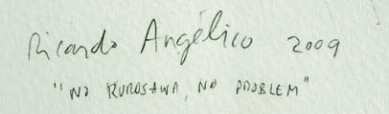 Ricardo Angélico 2009
"NO KUROSAWA, NO PROBLEM"